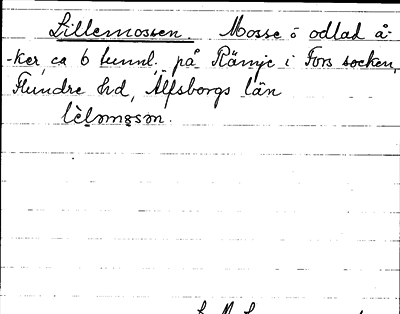 Lillemossen. Mosse o odlad å-
-ker, ca 6 tunnl. på Rämje i Fors socken,
Flundre hd, Älfsborgs län